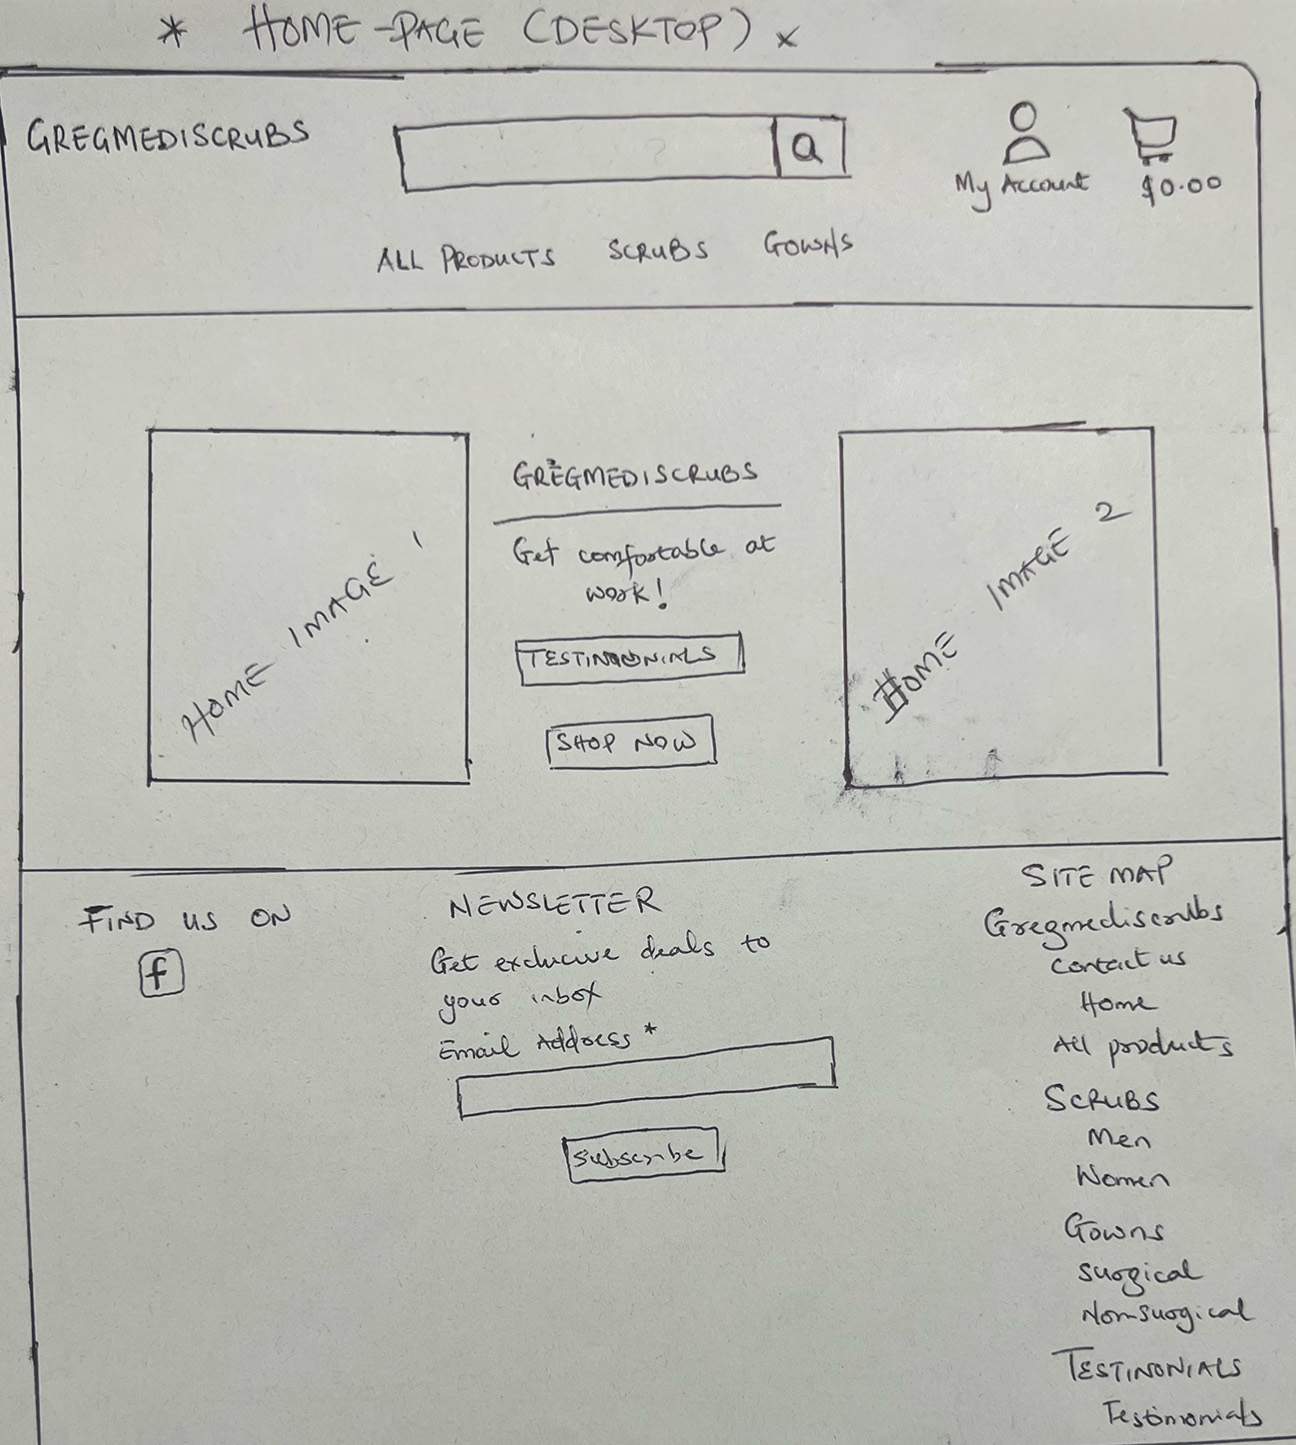 * HOME-PAGE (DESKTOP) x
GREGMEDISCRUBS
My Account
$0.00
ALL PRODUCTS SCRUBS GOWNS
HOME IMAGE 1
GREGMEDISCRUBS
Get comfortable at
work!
TESTIMONIALS
SHOP NOW
HOME IMAGE 2
FIND US ON
f
NEWSLETTER
Get exclucive deals to
your inbox
Email Address *
Subscribe
SITE MAP
Gregmediscrubs
Contact us
Home
All products
SCRUBS
Men
Women
Gowns
Surgical
Nonsurgical
TESTINONIALS
Testimonials